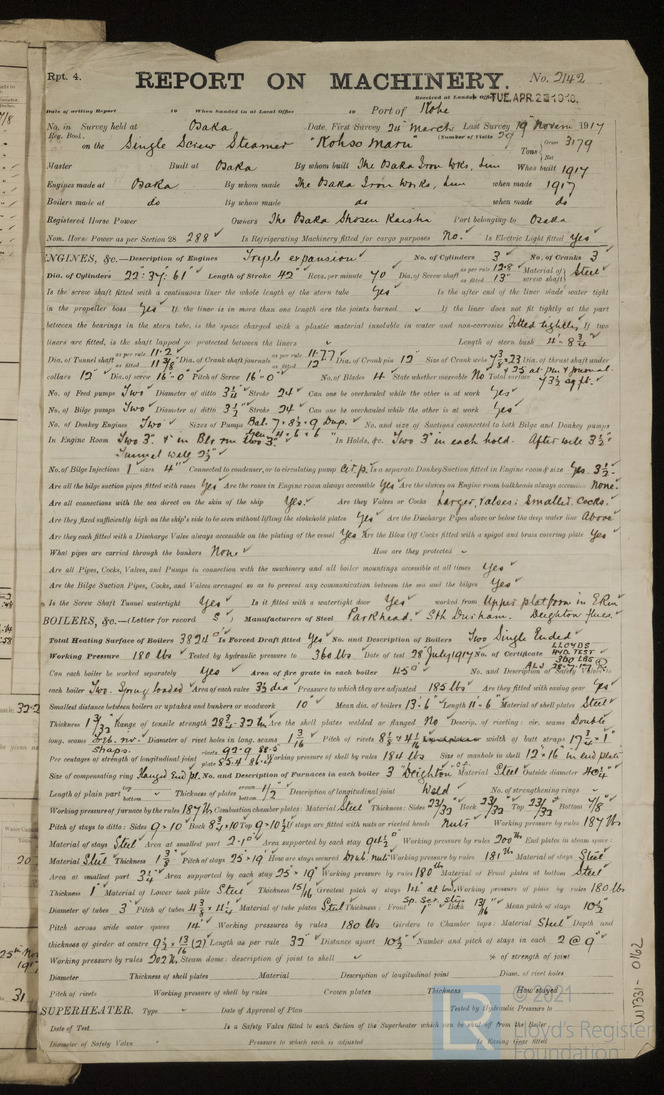 Rpt. 4.
REPORT ON MACHINERY.
No. 2142
Received at London Office TUE. APR. 23 1918.
Date of writing Report 19 When handed in at Local Office 19 Port of Kobe
No. in Survey held at Osaka Date, First Survey 24 March Last Survey 19 Novem 1917
Reg. Book. (Number of Visits 29
on the Single Screw Steamer "Kohso Maru" Tons Gross 3179
Net
Master Built at Osaka By whom built The Osaka Iron Wks, Lim When built 1917
Engines made at Osaka By whom made The Osaka Iron Works, Lim when made 1917
Boilers made at do By whom made do when made do
Registered Horse Power Owners The Osaka Shosen Kaisha Port belonging to Osaka
Nom. Horse Power as per Section 28 288 Is Refrigerating Machinery fitted for cargo purposes No. Is Electric Light fitted Yes
ENGINES, &c.—Description of Engines Triple expansion No. of Cylinders 3 No. of Cranks 3
Dia. of Cylinders 22": 37": 61" Length of Stroke 42" Revs. per minute 70 Dia. of Screw shaft as per rule 12.8 as fitted 13" Material of screw shaft Steel
Is the screw shaft fitted with a continuous liner the whole length of the stern tube Yes Is the after end of the liner made water tight
in the propeller boss Yes If the liner is in more than one length are the joints burned If the liner does not fit tightly at the part
between the bearings in the stern tube, is the space charged with a plastic material insoluble in water and non-corrosive Fitted tightly If two
liners are fitted, is the shaft lapped or protected between the liners Length of stern bush 4'-8 3/4"
Dia. of Tunnel shaft as per rule 11.2 as fitted 11 3/8 Dia. of Crank shaft journals as per rule 11.77 as fitted 12" Dia. of Crank pin 12" Size of Crank webs Dia. of thrust shaft under
collars 12" Dia. of screw 16'-0" Pitch of Screw 16'-0" No. of Blades 4 State whether moveable No Total surface 73 1/2 sq ft.
No. of Feed pumps Two Diameter of ditto 3 1/4 Stroke 24 Can one be overhauled while the other is at work Yes
No. of Bilge pumps Two Diameter of ditto 3 1/2 Stroke 24 Can one be overhauled while the other is at work Yes
No. of Donkey Engines Two Sizes of Pumps Bal. 7 x 8 1/2 x 9 Dup. No. and size of Suctions connected to both Bilge and Donkey pumps
In Engine Room Two 3" & in Blr rm two 3" In Holds, &c. Two 3" in each hold. After well 3 1/2"
Tunnel well 2 1/2"
No. of Bilge Injections 1 sizes 4" Connected to condenser, or to circulating pump Cir. p. Is a separate Donkey Suction fitted in Engine room & size Yes 3 1/2"
Are all the bilge suction pipes fitted with roses Yes Are the roses in Engine room always accessible Yes Are the sluices on Engine room bulkheads always accessible None
Are all connections with the sea direct on the skin of the ship Yes. Are they Valves or Cocks Larger, valves: Smaller. Cocks.
Are they fixed sufficiently high on the ship's side to be seen without lifting the stokehold plates Yes Are the Discharge Pipes above or below the deep water line Above
Are they each fitted with a Discharge Valve always accessible on the plating of the vessel Yes Are the Blow Off Cocks fitted with a spigot and brass covering plate Yes
What pipes are carried through the bunkers None How are they protected
Are all Pipes, Cocks, Valves, and Pumps in connection with the machinery and all boiler mountings accessible at all times Yes
Are the Bilge Suction Pipes, Cocks, and Valves arranged so as to prevent any communication between the sea and the bilges Yes
Is the Screw Shaft Tunnel watertight Yes Is it fitted with a watertight door Yes worked from Upper platform in E Rm
BOILERS, &c.—(Letter for record S) Manufacturers of Steel Parkhead. Sth Durham. Deighton flues.
Total Heating Surface of Boilers 3824 Is Forced Draft fitted Yes No. and Description of Boilers Two Single Ended
Working Pressure 180 lbs Tested by hydraulic pressure to 360 lbs Date of test 28 July 1917 No. of Certificate LLOYDS HYD. TEST 360 LBS
Can each boiler be worked separately Yes Area of fire grate in each boiler 45 No. and Description of Safety Valves to
each boiler Two. Spring loaded Area of each valve 3 1/2 dia Pressure to which they are adjusted 185 lbs Are they fitted with easing gear Yes
Smallest distance between boilers or uptakes and bunkers or woodwork 10" Mean dia. of boilers 13'-6" Length 11'-6" Material of shell plates Steel
Thickness 1 3/32 Range of tensile strength 28 3/4-32 Are the shell plates welded or flanged No Descrip. of riveting: cir. seams Double
long. seams Treb. riv. Diameter of rivet holes in long. seams 1 3/16 Pitch of rivets width of butt straps 17 3/4 x 1"
straps.
Per centages of strength of longitudinal joint rivets 92.9 88.5 plate 85.4 Working pressure of shell by rules 184 lbs Size of manhole in shell 12 x 16 in end plate
Size of compensating ring Flanged End pl. No. and Description of Furnaces in each boiler 3 Deighton Material Steel Outside diameter
Length of plain part top bottom Thickness of plates crown bottom 1/2" Description of longitudinal joint Weld No. of strengthening rings
Working pressure of furnace by the rules 187 lbs Combustion chamber plates: Material Steel Thickness: Sides 23/32 Back 23/32 Top 23/32 Bottom 7/8
Pitch of stays to ditto: Sides 9 x 10" Back 8 3/4 x 10 Top 9 x 10 1/2 If stays are fitted with nuts or riveted heads Nuts Working pressure by rules 187 lbs
Material of stays Steel Area at smallest part Area supported by each stay Working pressure by rules 200 lbs End plates in steam space:
Material Steel Thickness Pitch of stays 25 x 19 How are stays secured Doub. nuts Working pressure by rules 181 lbs Material of stays Steel
Area at smallest part Area supported by each stay 25 x 19 Working pressure by rules 180 lbs Material of Front plates at bottom Steel
Thickness 1" Material of Lower back plate Steel Thickness 15/16 Greatest pitch of stays 14" Working pressure of plate by rules 180 lbs
Diameter of tubes 3" Pitch of tubes Material of tube plates Steel Thickness: Front 1" Back 13/16 Mean pitch of stays 10 1/2
Pitch across wide water spaces 14" Working pressures by rules 180 lbs Girders to Chamber tops: Material Steel Depth and
thickness of girder at centre 9 1/2 x 13/16 (2) Length as per rule 32" Distance apart 10 1/2" Number and pitch of stays in each 2 @ 9"
Working pressure by rules 202 lbs Steam dome: description of joint to shell % of strength of joint
Diameter Thickness of shell plates Material Description of longitudinal joint Diam. of rivet holes
Pitch of rivets Working pressure of shell by rules Crown plates Thickness How stayed
SUPERHEATER. Type Date of Approval of Plan Tested by Hydraulic Pressure to
Date of Test Is a Safety Valve fitted to each Section of the Superheater which can be shut off from the Boiler
Diameter of Safety Valve Pressure to which each is adjusted Is Easing Gear fitted
W1331-0162
LR
© 2021
Lloyd's Register
Foundation